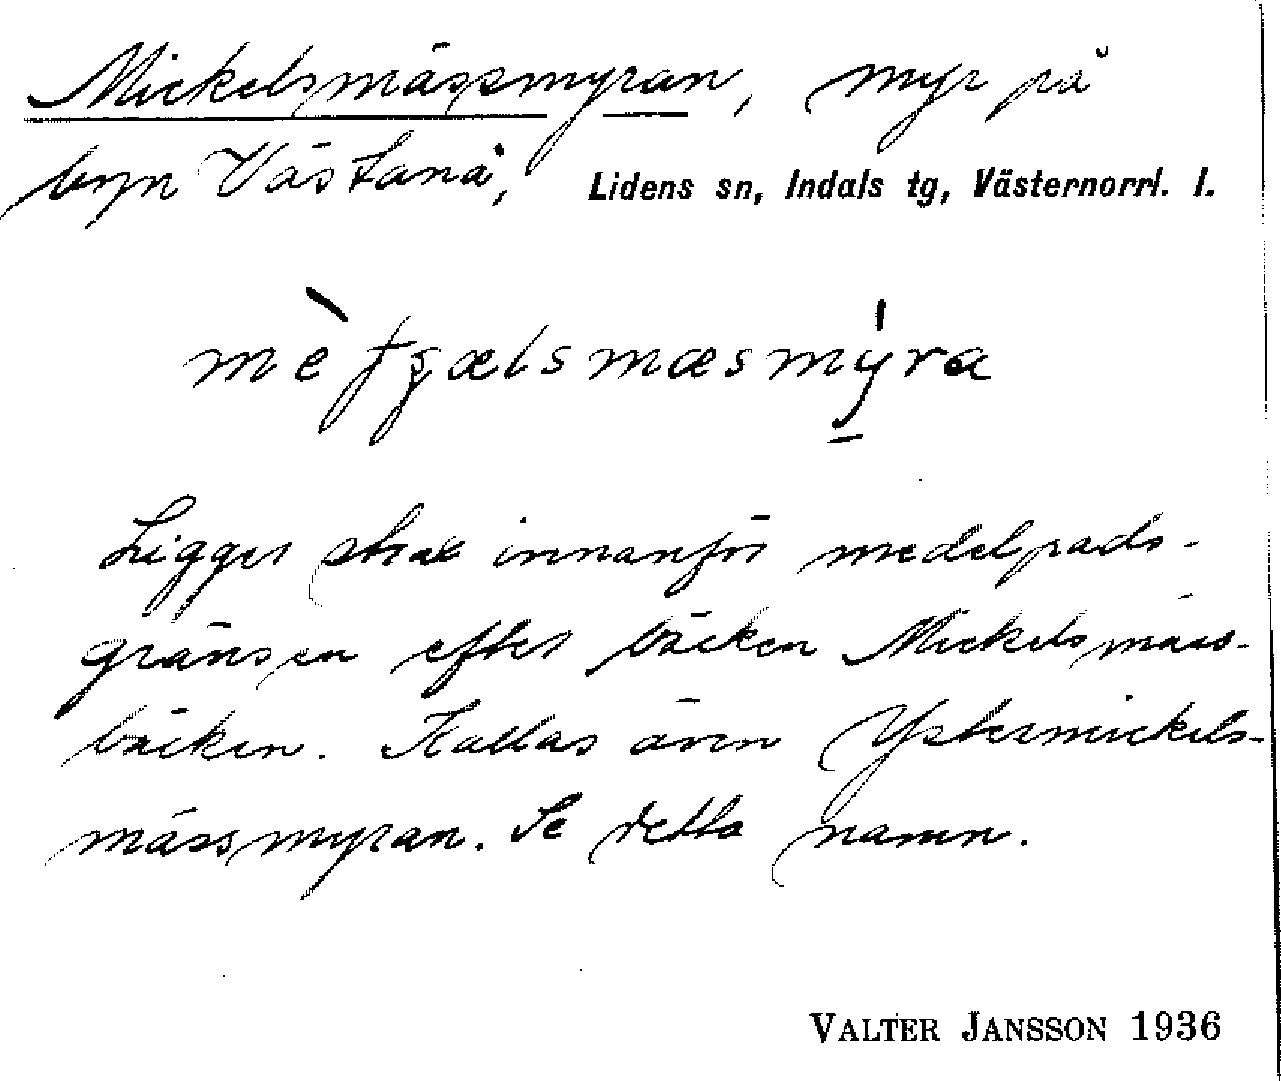 Mickelsmässmyran, myr på
byn Västanå, Lidens sn, Indals tg, Västernorrl. l.
Ligger strax innanför medelpads-
gränsen efter bäcken Mickelsmäss-
bäcken. Kallas även Ystermickels-
mässmyran. Se detta namn.
VALTER JANSSON 1936